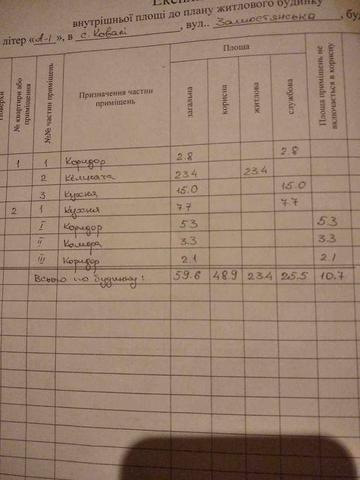 внутрішньої площі до плану житлового будинку
літер «А-І», в с. Ковалі, вул.. Замостянська, бу
Поверхи
№ квартири або приміщення
№№ частин приміщень
Призначення частин приміщень
Площа
загальна
корисна
житлова
службова
Площа приміщень не включається в корисну
1 1 Коридор 2.8 2.8
2 Кімната 23.4 23.4
3 Кухня 15.0 15.0
2 1 Кухня 7.7 7.7
I Коридор 5.3 5.3
II Комора 3.3 3.3
III Коридор 2.1 2.1
Всього по будинку: 59.6 48.9 23.4 25.5 10.7